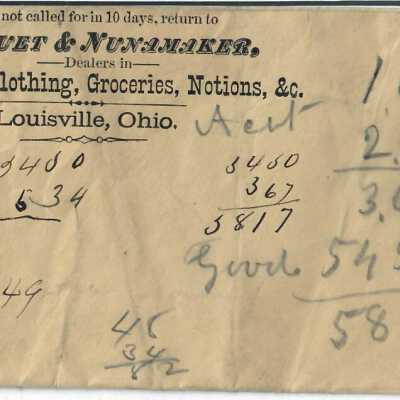 not called for in 10 days, return to
UET & NUNAMAKER,
Dealers in
lothing, Groceries, Notions, &c.
Louisville, Ohio.
Acct 1.
2.
3.
3450
367
3817
3450
634
Goods 545
58
49
45
34